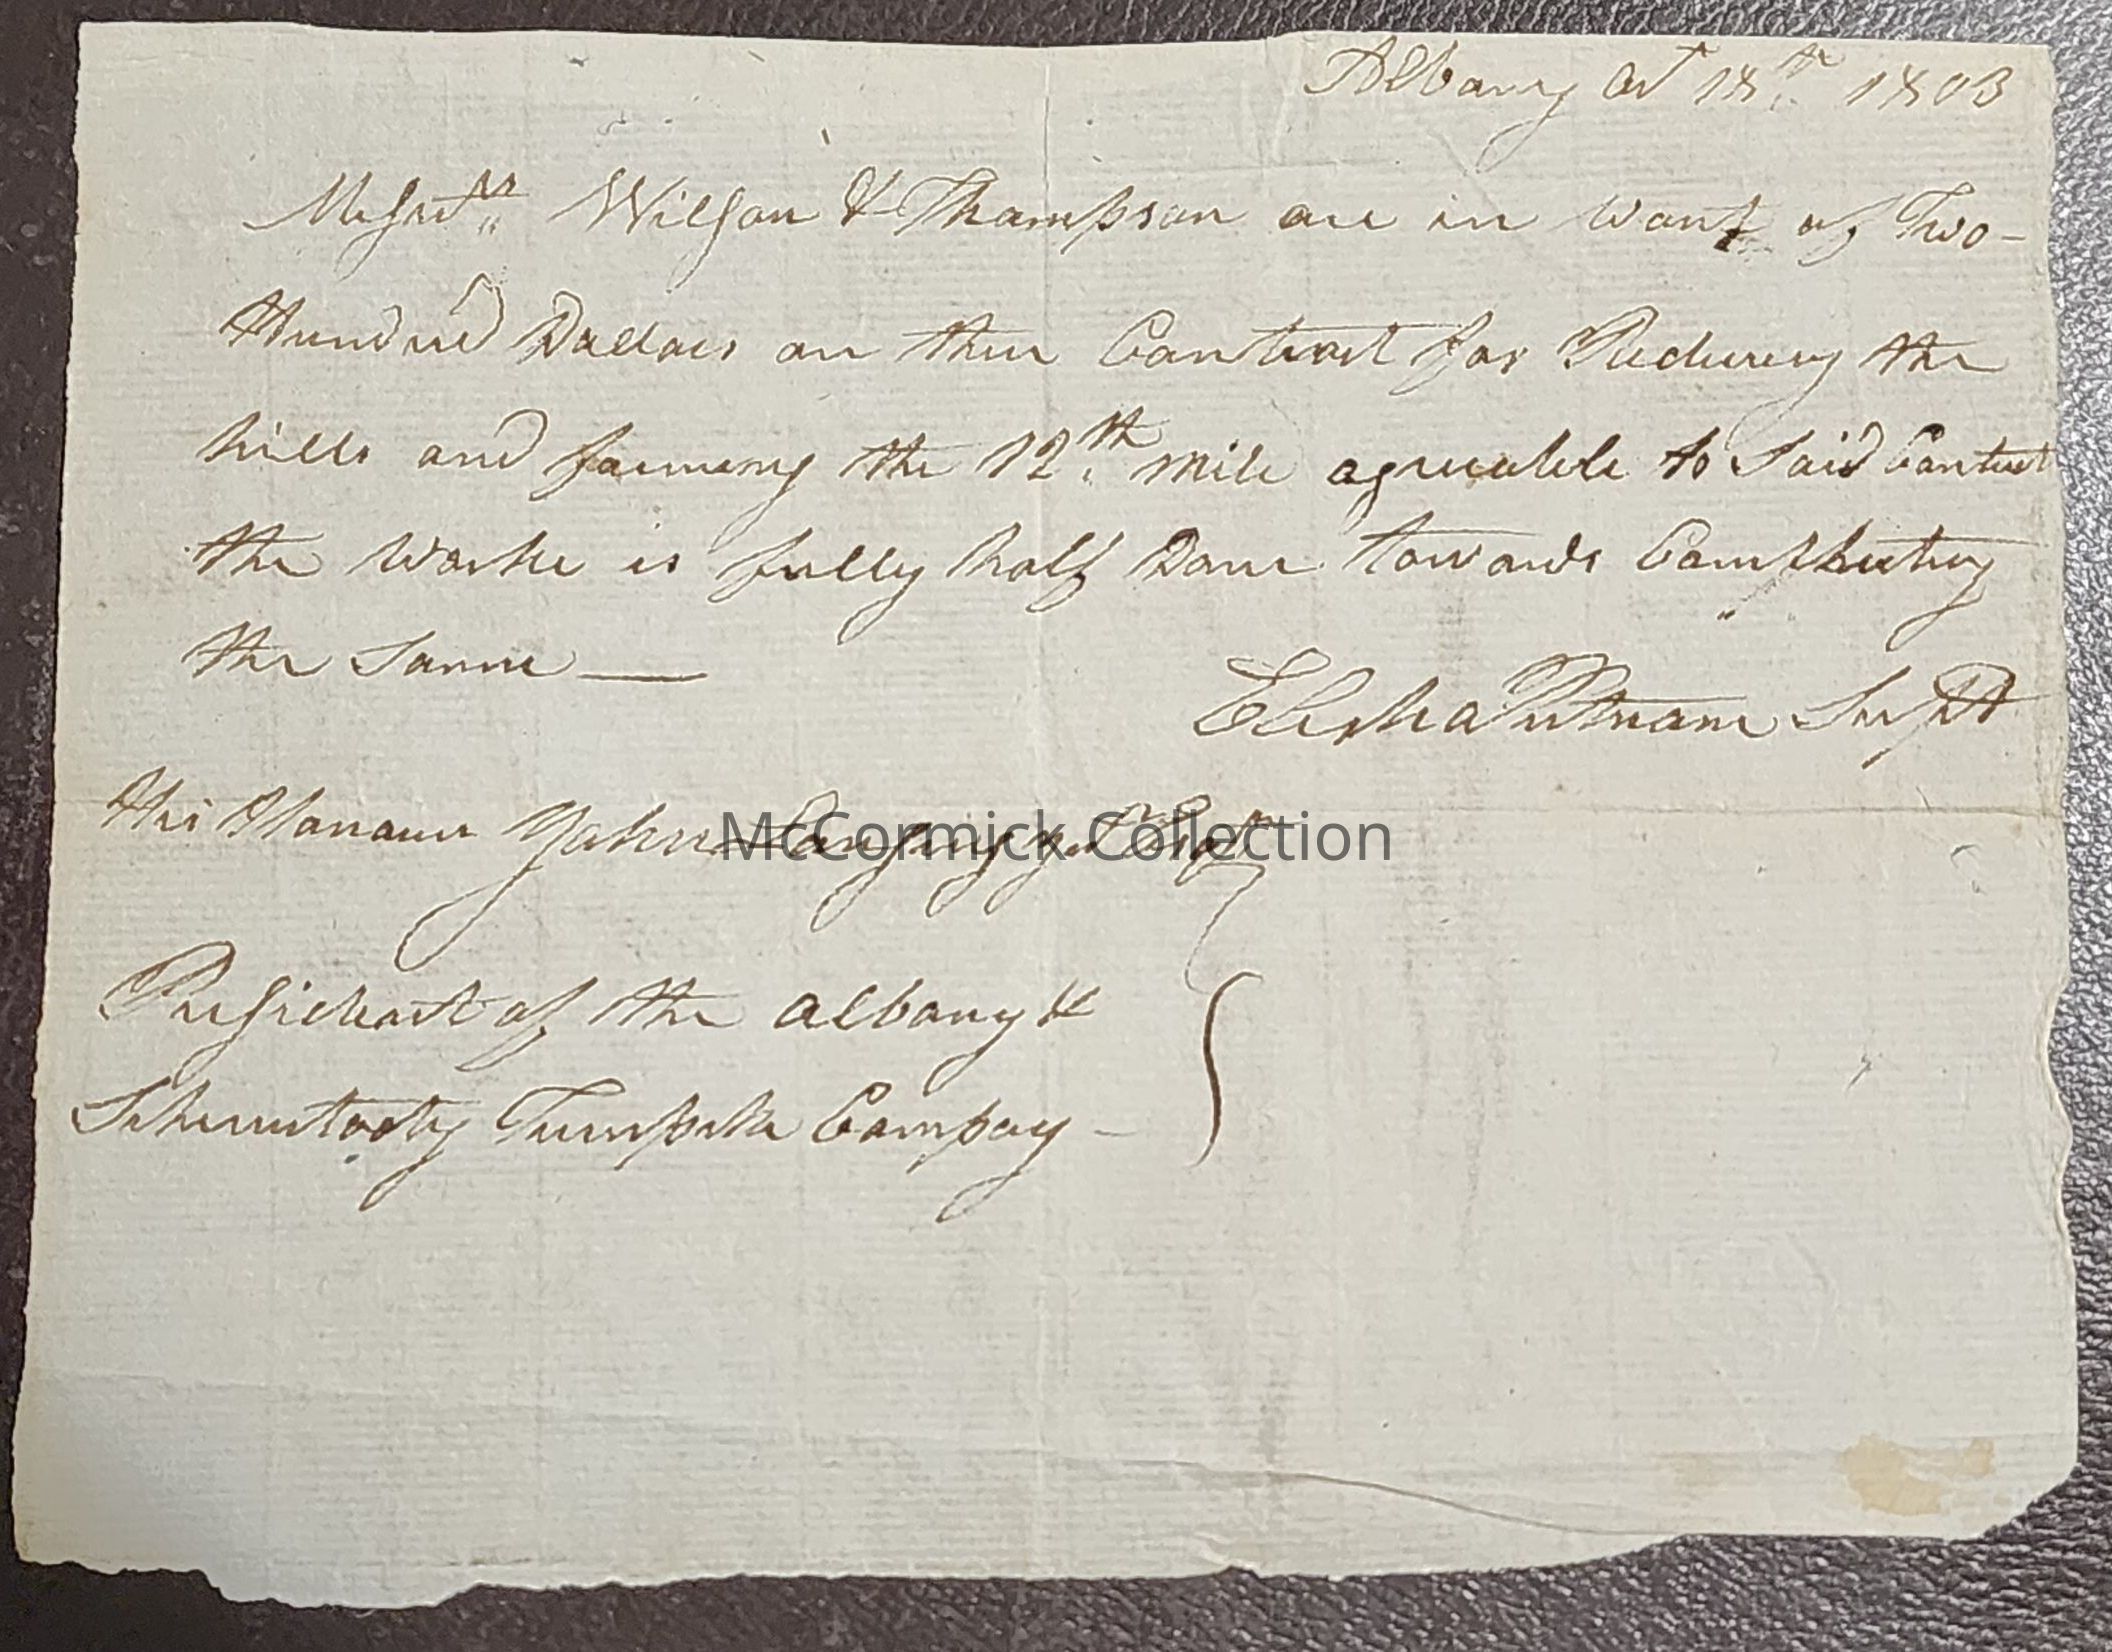 Albany Oct 18th 1803
Messrs Wilson & Thompson are in want of Two
Hundred Dollars on their Contract for Reducing the
hills and forming the 12th mile agreeable to Said Contract
the Worke is fully half Done towards Compleeting
the Same —
Elisha Putnam Supt
His Honour John Lansing Jur Esqr
McCormick Collection
President of the Albany &
Schenectady Turnpike Compay —